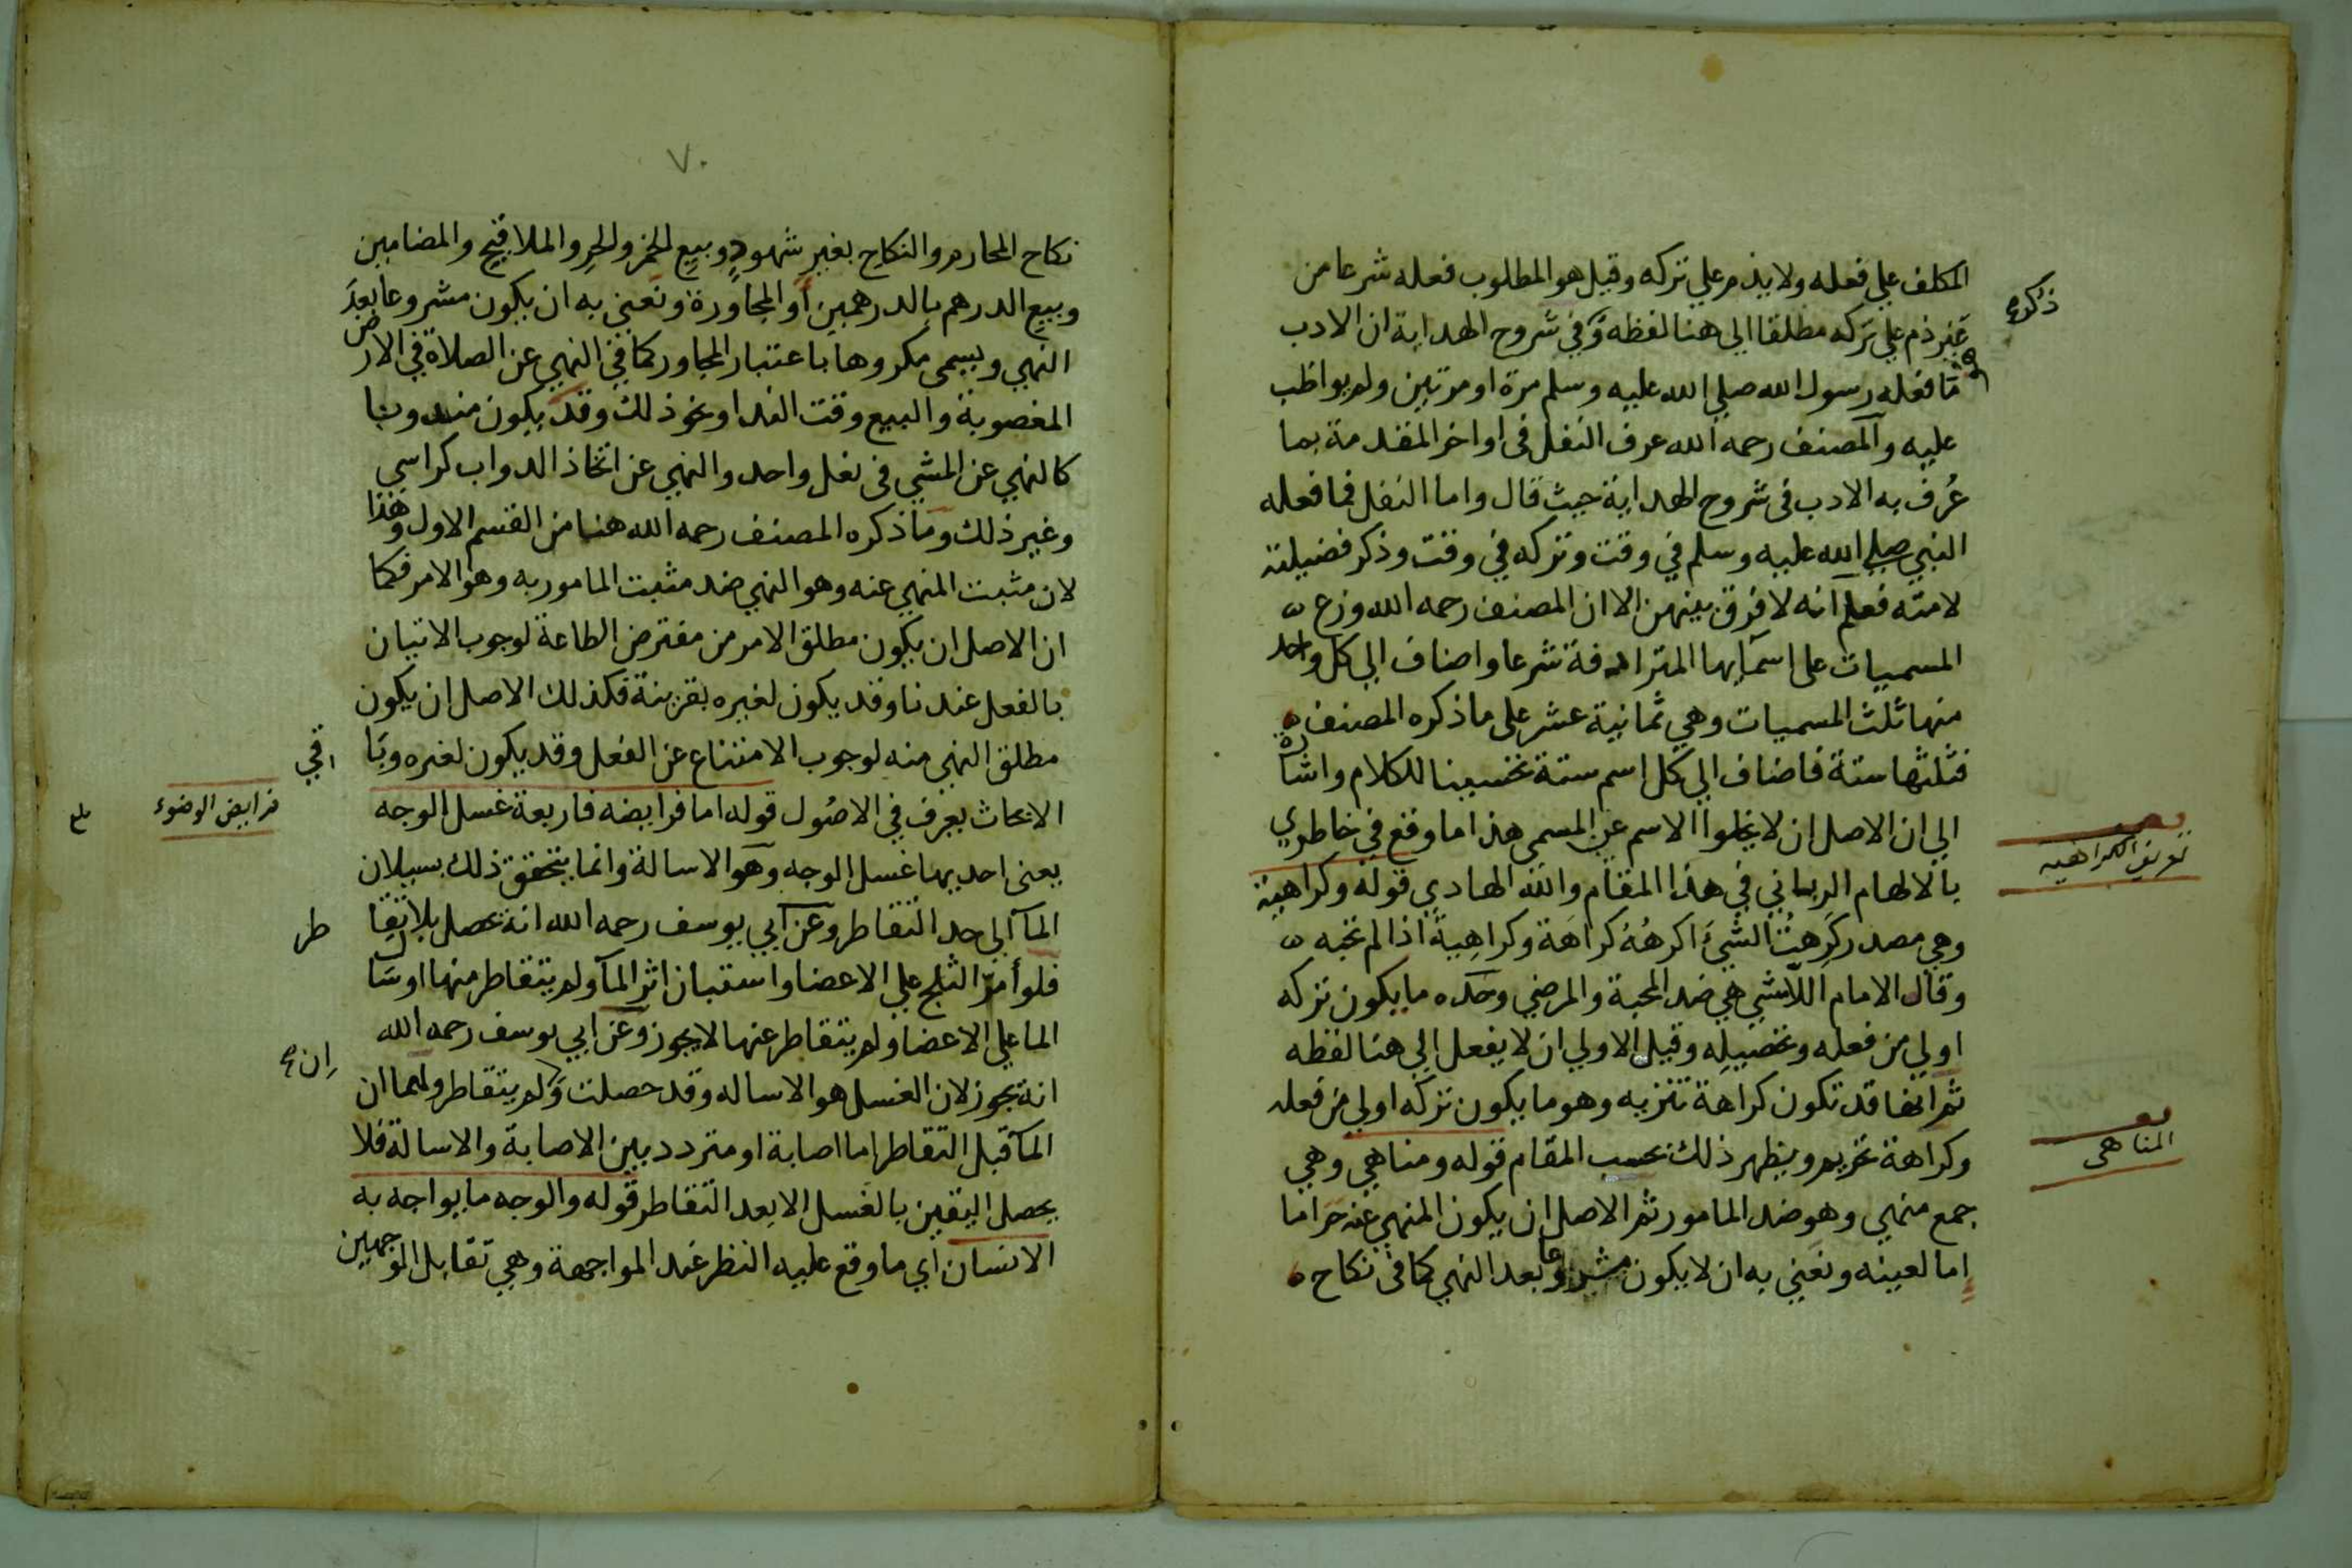 المكلف علي فعله ولا يذم علي تركه وقيل هو المطلوب فعله شرعا من
غير ذم علي تركه مطلقا الي هنا لفظه وفي شروح الهداية ان الادب
ما فعله رسول الله صلي الله عليه وسلم مرة او مرتين ولم يواظب
عليه والمصنف رحمه الله عرف النفل في اواخر المقدمة بما
عُرف به الادب في شروح الهداية حيث قال واما النفل فما فعله
النبي صلي الله عليه وسلم في وقت وتركه في وقت وذكر فضيلته
لامته فعلم انه لا فرق بينهن الا ان المصنف رحمه الله وزع
المسميات على اسمايها المترادفة شرعا واضاف الي كل واحد
منها ثلث المسميات وهي ثمانية عشر على ما ذكره المصنف
فثلثها ستة فاضاف الي كل اسم ستة تحسينا للكلام واشارة
الي ان الاصل ان لا يخلوا الاسم عن المسمي هذا ما وقع في خاطري
بالالهام الرباني في هذا المقام والله الهادي قوله وكراهية
وهي مصدر كَرِهتُ الشيءَ اكرهُهُ كراهَة وكراهِيةً اذا لم تحبه
وقال الامام اللامشي هي ضد المحبة والمرضي وحده ما يكون تركه
اولي من فعله وتحصيلِه وقيل الاولي ان لا يفعل الي هنا لفظه
ثم انها قد تكون كراهة تنزيه وهو ما يكون تركه اولي من فعله
وكراهة تحريم ويظهر ذلك بحسب المقام قوله ومناهي وهي
جمع منهي وهو ضد المامور ثم الاصل ان يكون المنهي عنه حراما
اما لعينه ونعني به ان لا يكون مشروعا بعد النهي كما في نكاح
تعريف الكراهية
المناهى
٧٠
نكاح المحارم والنكاح بغير شهودٍ وبيعِ الخمر والحرِ والملاقيح والمضامين
وبيع الدرهم بالدرهمين أو المجاورة ونعني به ان يكون مشروعا بعدَ
النهي ويسمى مكروها باعتبار المجاور كما في النهي عن الصلاة في الارض
المغصوبة والبيع وقت الندا ونحو ذلك وقد يكون مندوبا
كالنهي عن المشي في نعل واحد والنهي عن اتخاذ الدواب كراسي
وغير ذلك وما ذكره المصنف رحمه الله هنا من القسم الاول وهذا
لان مثبت المنهي عنه وهو النهي ضد مثبت المامور به وهو الامر فكما
ان الاصل ان يكون مطلق الامر من مفترض الطاعة لوجوب الاتيان
بالفعل عندنا وقد يكون لغيره بقرينة فكذلك الاصل ان يكون
مطلق النهي منه لوجوب الامتناع عن الفعل وقد يكون لغيره وباقي
الابحاث يعرف في الاصُول قوله اما فرايضه فاربعة غسل الوجه
يعنى احديها غسل الوجه وهو الاسالة وانما يتحقق ذلك بسيلان
الما الي حد التقاطر وعن ابي يوسف رحمه الله انه يحصل بلا تقاطر
فلو أمرّ الثلج علي الاعضا واستبان اثر الما ولم يتقاطر منها او سال
الما علي الاعضا ولم يتقاطر عنها لا يجوز وعن ابي يوسف رحمه الله
انه يجوز لان الغسل هو الاساله وقد حصلت وان لم يتقاطر ولهما ان
الما قبل التقاطر اما اصابة او متردد بين الاصابة والاسالة فلا
يحصل اليقين بالغسل الا بعد التقاطر قوله والوجه ما يواجه به
الانسان اي ما وقع عليه النظر عند المواجهة وهي تقابل الوجهين
فرايض الوضوء